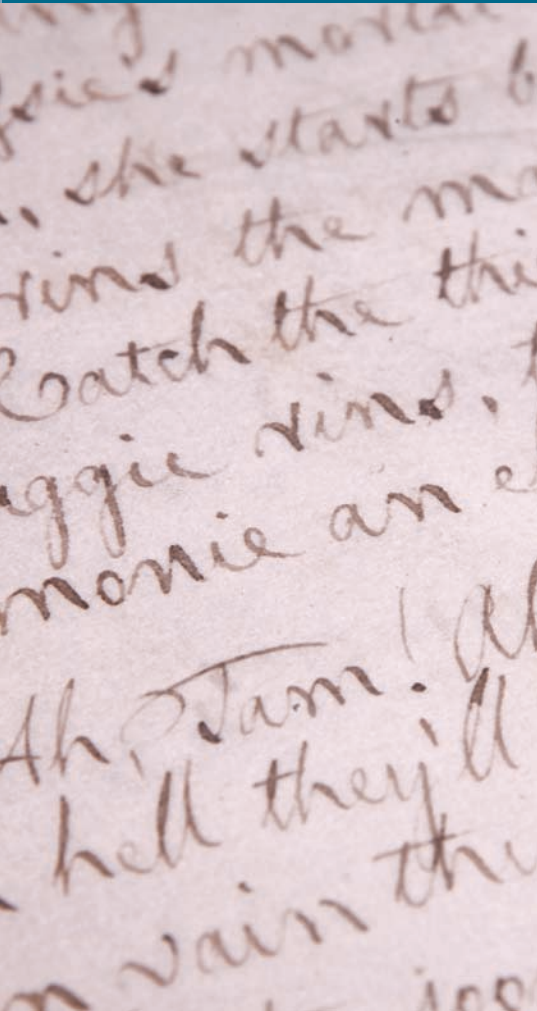 ssie's mortal
, she starts b
rins the ma
Catch the thi
aggie rins,
monie an e
Ah, Tam! Ah
hell they'll
n vain the